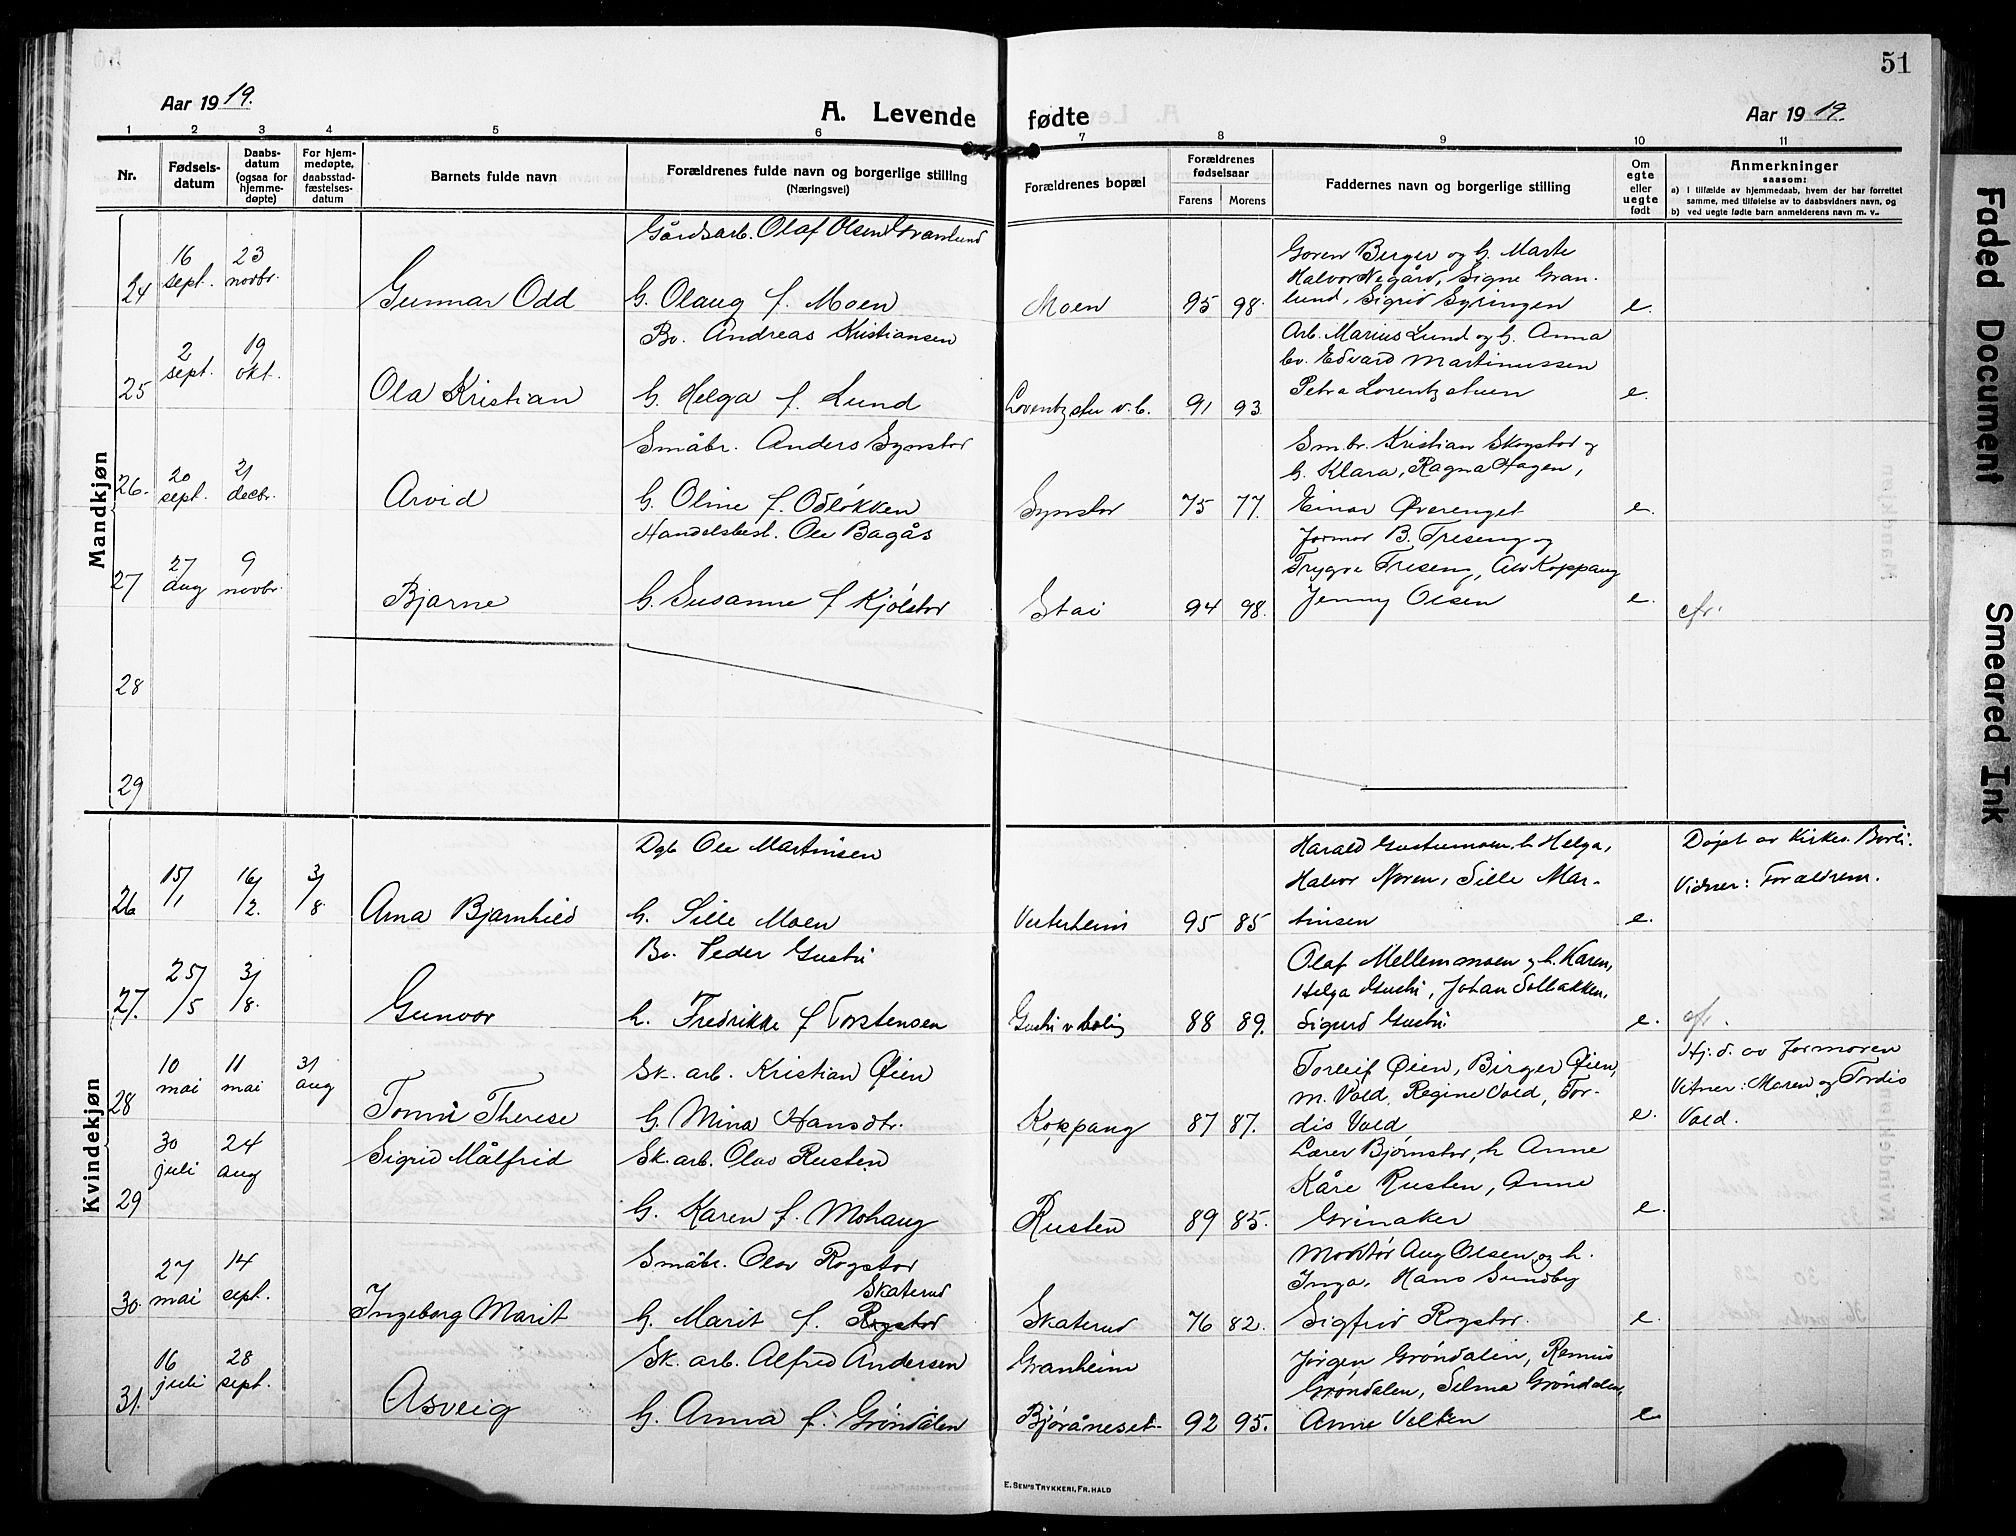 51
Aar 1919.
A. Levende fødte
Aar 1919.
1 2 3 4 5 6 7 8 9 10 11
Nr.
Fødsels-
datum
Daabs-
datum
(ogsaa for
hjemme-
døpte)
For hjem-
medøpte,
daabsstad-
fæstelses-
datum
Barnets fulde navn
Forældrenes fulde navn og borgerlige stilling
(Næringsvei)
Forældrenes bopæl
Forældrenes
fødselsaar
Farens Morens
Faddernes navn og borgerlige stilling
Om
egte
eller
uegte
født
Anmerkninger
saasom:
a) I tilfælde av hjemmedaab, hvem der har forrettet
samme, med tilføielse av to daabsvidners navn, og
b) ved uegte fødte barn anmelderens navn m. v..
Mandkjøn
Gårdsarb. Olaf Olsen Granlund
24 16 sept. 23 novbr. Gunnar Odd
H. Olaug f. Moen
Moen 95 98.
Goren Berger og h. Marte
Halvor Negård, Signe Gran-
lund, Sigrid Gyringen
e.
Bv. Andreas Kristiansen
25 2 sept. 19 okt. Ola Kristian
H. Helga f. Lund
v. b. 91 93
Arb. Marius Lund og h. Anna
bv. Edvard Martinussen
Petra Lorentzstuen
e.
Småbr. Anders Synstor
26. 20 sept. 21 decbr. Arvid
H. Oline f. Odløkken
Synstor 75 77.
Sm.br. Kristian Skogstor og
h. Klara, Ragna Hagen,
Einar Øverenget
e.
Handelsbest. Ole Bagås
27 27 aug 9 novbr. Bjarne
H. Susanne f. Kjølstor
Stai 94 98.
Jormor B. Treseng og
Trygve Treseng, Alv Koppang
Jenny Olsen
e.
cfr.
28
29
Kvindekjøn
Dgl. Ole Martinsen
26 15/1 16/2. 3/8 Arna Bjarnhild
H. Sille Moen
Vesterheim 95 85
Harald h. Helga,
Halvor Noren, Sille Mar-
tinsen
e.
Døpt av Kirkes. Borli.
Vidner: Forældrene.
Bv. Peder Gustu
27. 25/5 3/8. Gunvor
h. Fredrikke f Torstensen
Gustu v bolig 88 89.
Olaf Mellemmoen og h. Karen,
Helga Gustu, Johan Solbakken,
Sigurd Gustu
e.
cfr.
Sk. arb. Kristian Øien
28 10 mai 11 mai 31 aug Tomi Therese
H. Mina Hansdtr.
Koppang 87 87.
Torleif Øien, Birger Øien,
m. Vold, Regine Vold, Tor-
dis Vold
e.
Hj. d. av Jormoren
Vitner: Maren og Tordis
Vold.
Sk. arb. Olav Rusten
29 30 juli 24 aug Sigrid Målfrid
H. Karen f. Mohaug
Rusten 89 85.
Lærer Bjørnstor, h Anne
Kåre Rusten, Anne
Grinaker
e.
Småbr. Olav Rogstor
Skaterud
30. 27 mai 14 sept. Ingeborg Marit
H. Marit f. Rogstor
Skaterud 76 82.
Aug Olsen og h.
Inga, Hans Sundby
Sigfrid Rogstor.
e.
Sk. arb. Alfred Andersen
Granheim
31. 16 juli 28 sept. Asveig
H. Anna f. Grøndalen
Bjøråneset 92 95.
Jørgen Grøndalen, Remus
Grøndalen, Selma Grøndalen,
Anne Velten
e
E. SEM'S TRYKKERI, FR. HALD
Faded Document
Smeared Ink